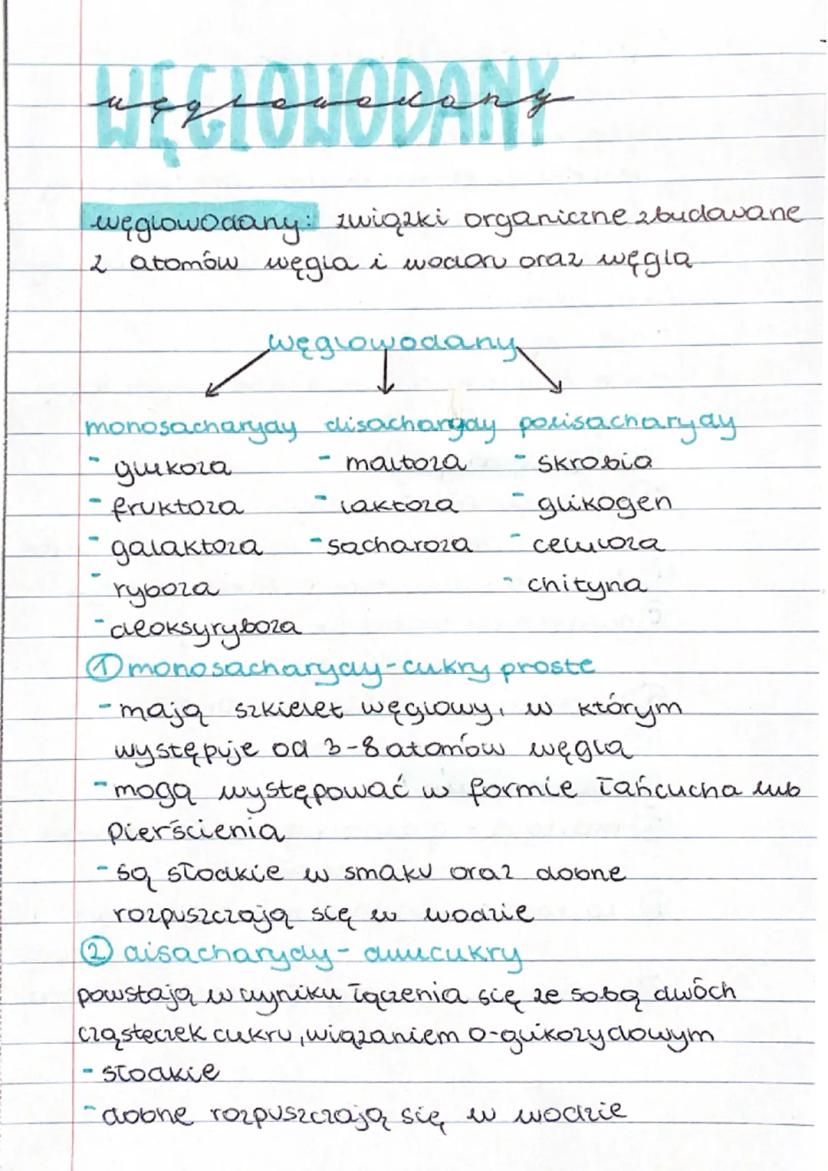 WĘGLOWODANY
węglowodany
węglowodany: związki organiczne zbudowane
z atomów węgla i wodoru oraz węgla
węglowodany
monosacharydy disacharydy polisacharydy
- glukoza - maltoza - skrobia
- fruktoza - laktoza - glikogen
- galaktoza - sacharoza - celuloza
- ryboza - chityna
- deoksyryboza
① monosacharydy - cukry proste
- mają szkielet węglowy, w którym
występuje od 3-8 atomów węgla
- mogą występować w formie łańcucha lub
pierścienia
- są słodkie w smaku oraz dobne
rozpuszczają się w wodzie
② disacharydy - dwucukry
powstają w wyniku łączenia się ze sobą dwóch
cząsteczek cukru, wiązaniem O-glikozydowym
- słodkie
- dobne rozpuszczają się w wodzie